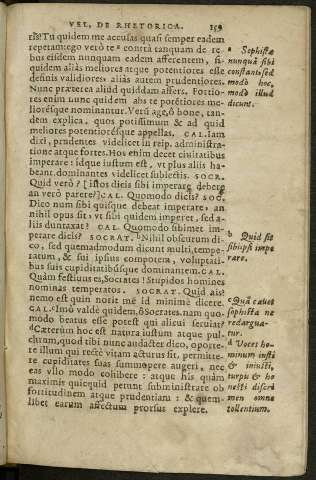 VEL, DE RHETORICA. 159
ris? Tu quidem me accusas quasi semper eadem
repetam: ego verò te contrà tanquam de re-
bus eisdem nunquam eadem afferentem, si-
quidem aliàs meliores atque potentiores esse
definis validiores: aliàs autem prudentiores.
Nunc præterea aliud quiddam affers. Fortio-
res enim nunc quidem abs te potētiores me-
lioresque nominantur. Verùm age, ô bone, tan-
dem explica, quos potissimum & ad quid
meliores potentiorésque appellas. CAL. Iam
dixi, prudentes videlicet in reip. administra-
tione atque fortes. Hos enim decet ciuitatibus
imperare: idque iustum est, vt plus aliis ha-
beant, dominantes videlicet subiectis. SOCR.
Quid verò? [istos dicis sibi imperare debere
an verò parere?] CAL. Quomodo dicis? SOC.
Dico num sibi quisque debeat imperare: an
nihil opus sit, vt sibi quidem imperet, sed a-
liis duntaxat? CAL. Quomodo sibimet im-
perare dicis? SOCRAT. b Nihil obscurum di-
co, sed quemadmodum dicunt multi, tempe-
ratum, & sui ipsius compotem, voluptati-
bus suis cupiditatibúsque dominantem. CAL.
Quàm festiuus es, Socrates! Stupidos homines
nominas temperatos. SOCRAT. Quid ais?
nemo est quin norit me id minimè dicere.
CAL. Imò valdè quidem, ô Socrates. nam quo-
modo beatus esse potest qui alicui seruiat?
d Cæterùm hoc est natura iustum atque pul-
chrum, quod tibi nunc audacter dico, oporte-
re illum qui rectè vitam acturus sit, permitte-
re cupiditates suas summopere augeri, nec
eas vllo modo cohibere: atque his quàm
maximis quicquid petunt subministrare ob
fortitudinem atque prudentiam: & quem-
libet earum affectum prorsus explere.
a Sophistæ
nunquā sibi
constant: sed
modò hoc,
modò illud
dicunt.
b Quid sit
sibi ipsi impe
rare.
c Quā cauet
sophista ne
redargua-
tur.
d Voces ho-
minum iusti
& iniusti,
turpis & ho
nesti discri
men omne
tollentium.